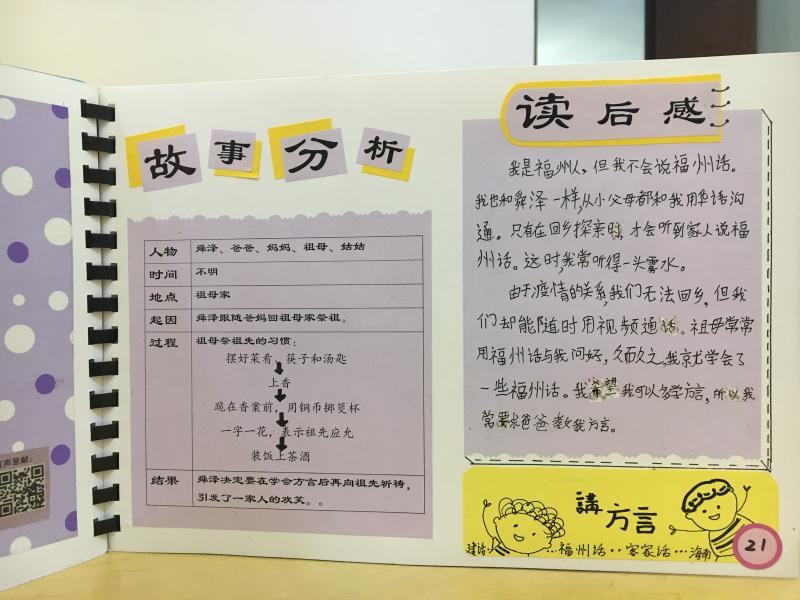 故事分析
人物 舜泽、爸爸、妈妈、祖母、姑姑
时间 不明
地点 祖母家
起因 舜泽跟随爸妈回祖母家祭祖。
过程 祖母祭祖先的习惯：
摆好菜肴 筷子和汤匙
上香
跪在香案前，用铜币掷筊杯
一字一花，表示祖先应允
装饭上茶酒
结果 舜泽决定要在学会方言后再向祖先祈祷，
引发了一家人的欢笑。。
读后感
我是福州人，但我不会说福州话。
我也和舜泽一样，从小父母都和我用华话沟
通。只有在回乡探亲时，才会听到家人说福
州话。这时，我常听得一头雾水。
由于疫情的关系，我们无法回乡，但我
们却能随时用视频通话。祖母常常
用福州话与我问好，久而久之，我就学会了
一些福州话。我希望我可以多学方言，所以我
常要求爸爸教我方言。
講方言
福州话··客家话···海南
21